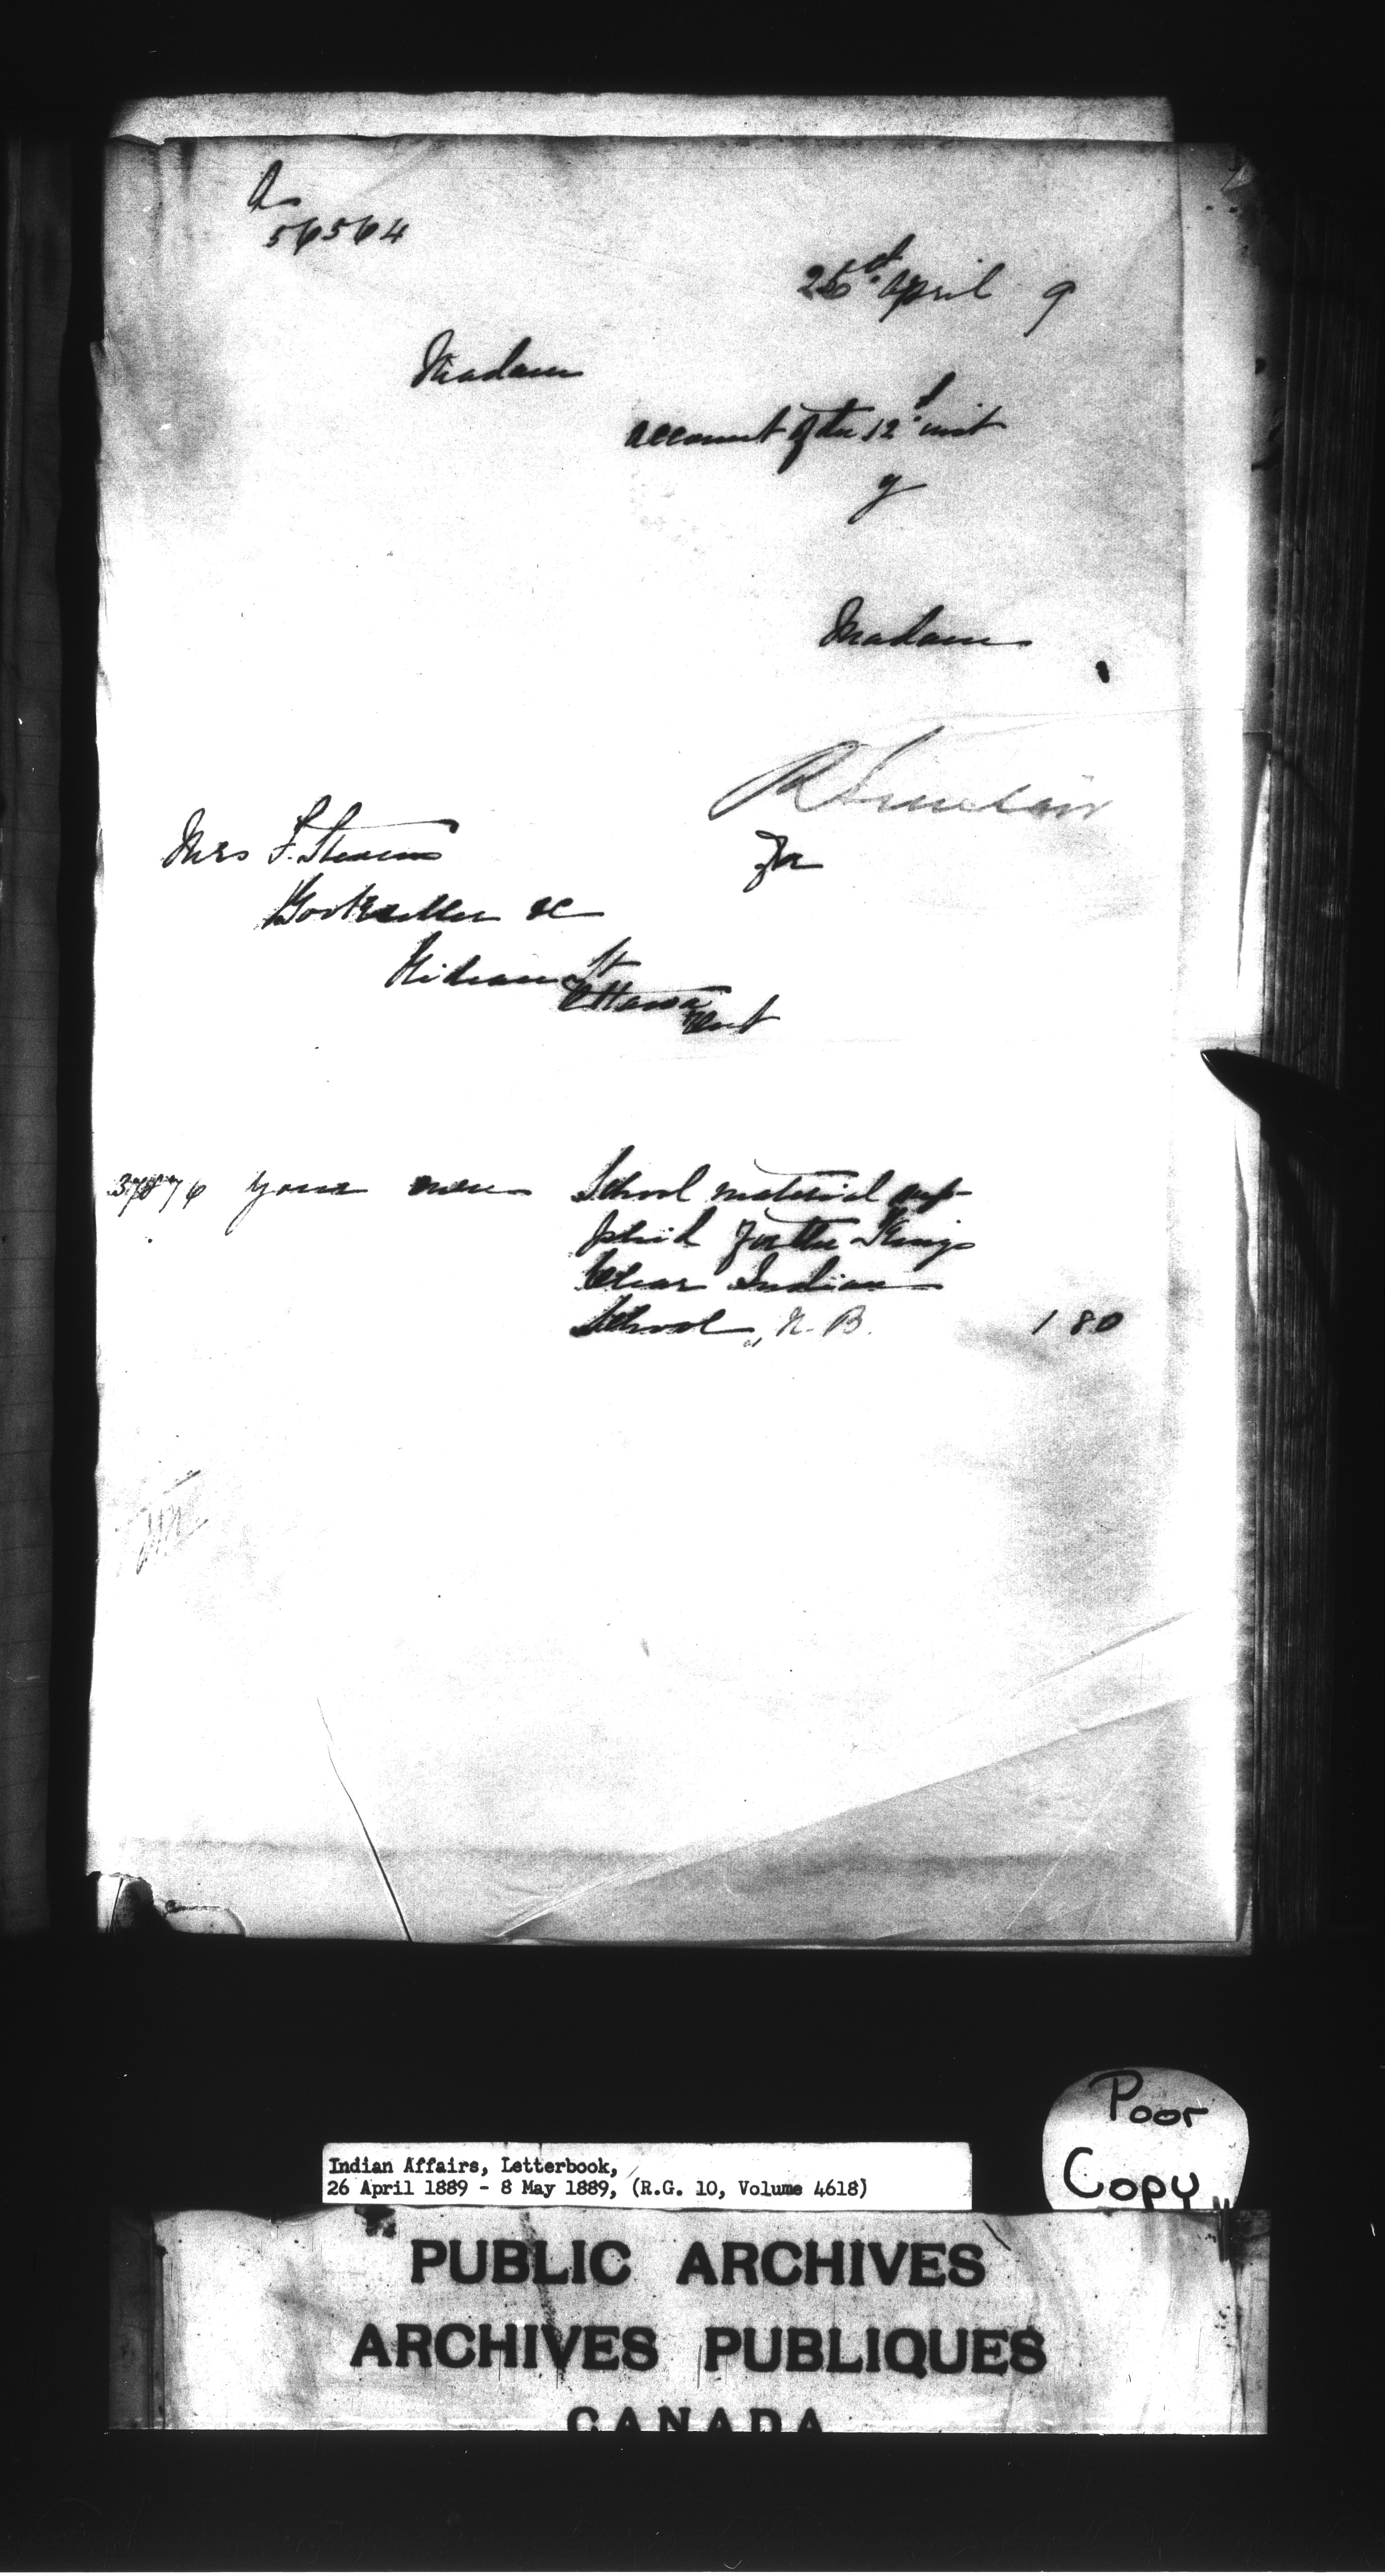 A
56564
26th April 9
Madam
account of the 12th inst
y
Madam
R Sinclair
for
Mrs F. Stevens
Bookseller &c
Rideau St
Ottawa
Ont
37876 your own School material sup-
plied for the Kings
Clear Indian
School, N. B. 1 80
Poor
Copy
Indian Affairs, Letterbook,
26 April 1889 - 8 May 1889, (R.G. 10, Volume 4618)
PUBLIC ARCHIVES
ARCHIVES PUBLIQUES
CANADA